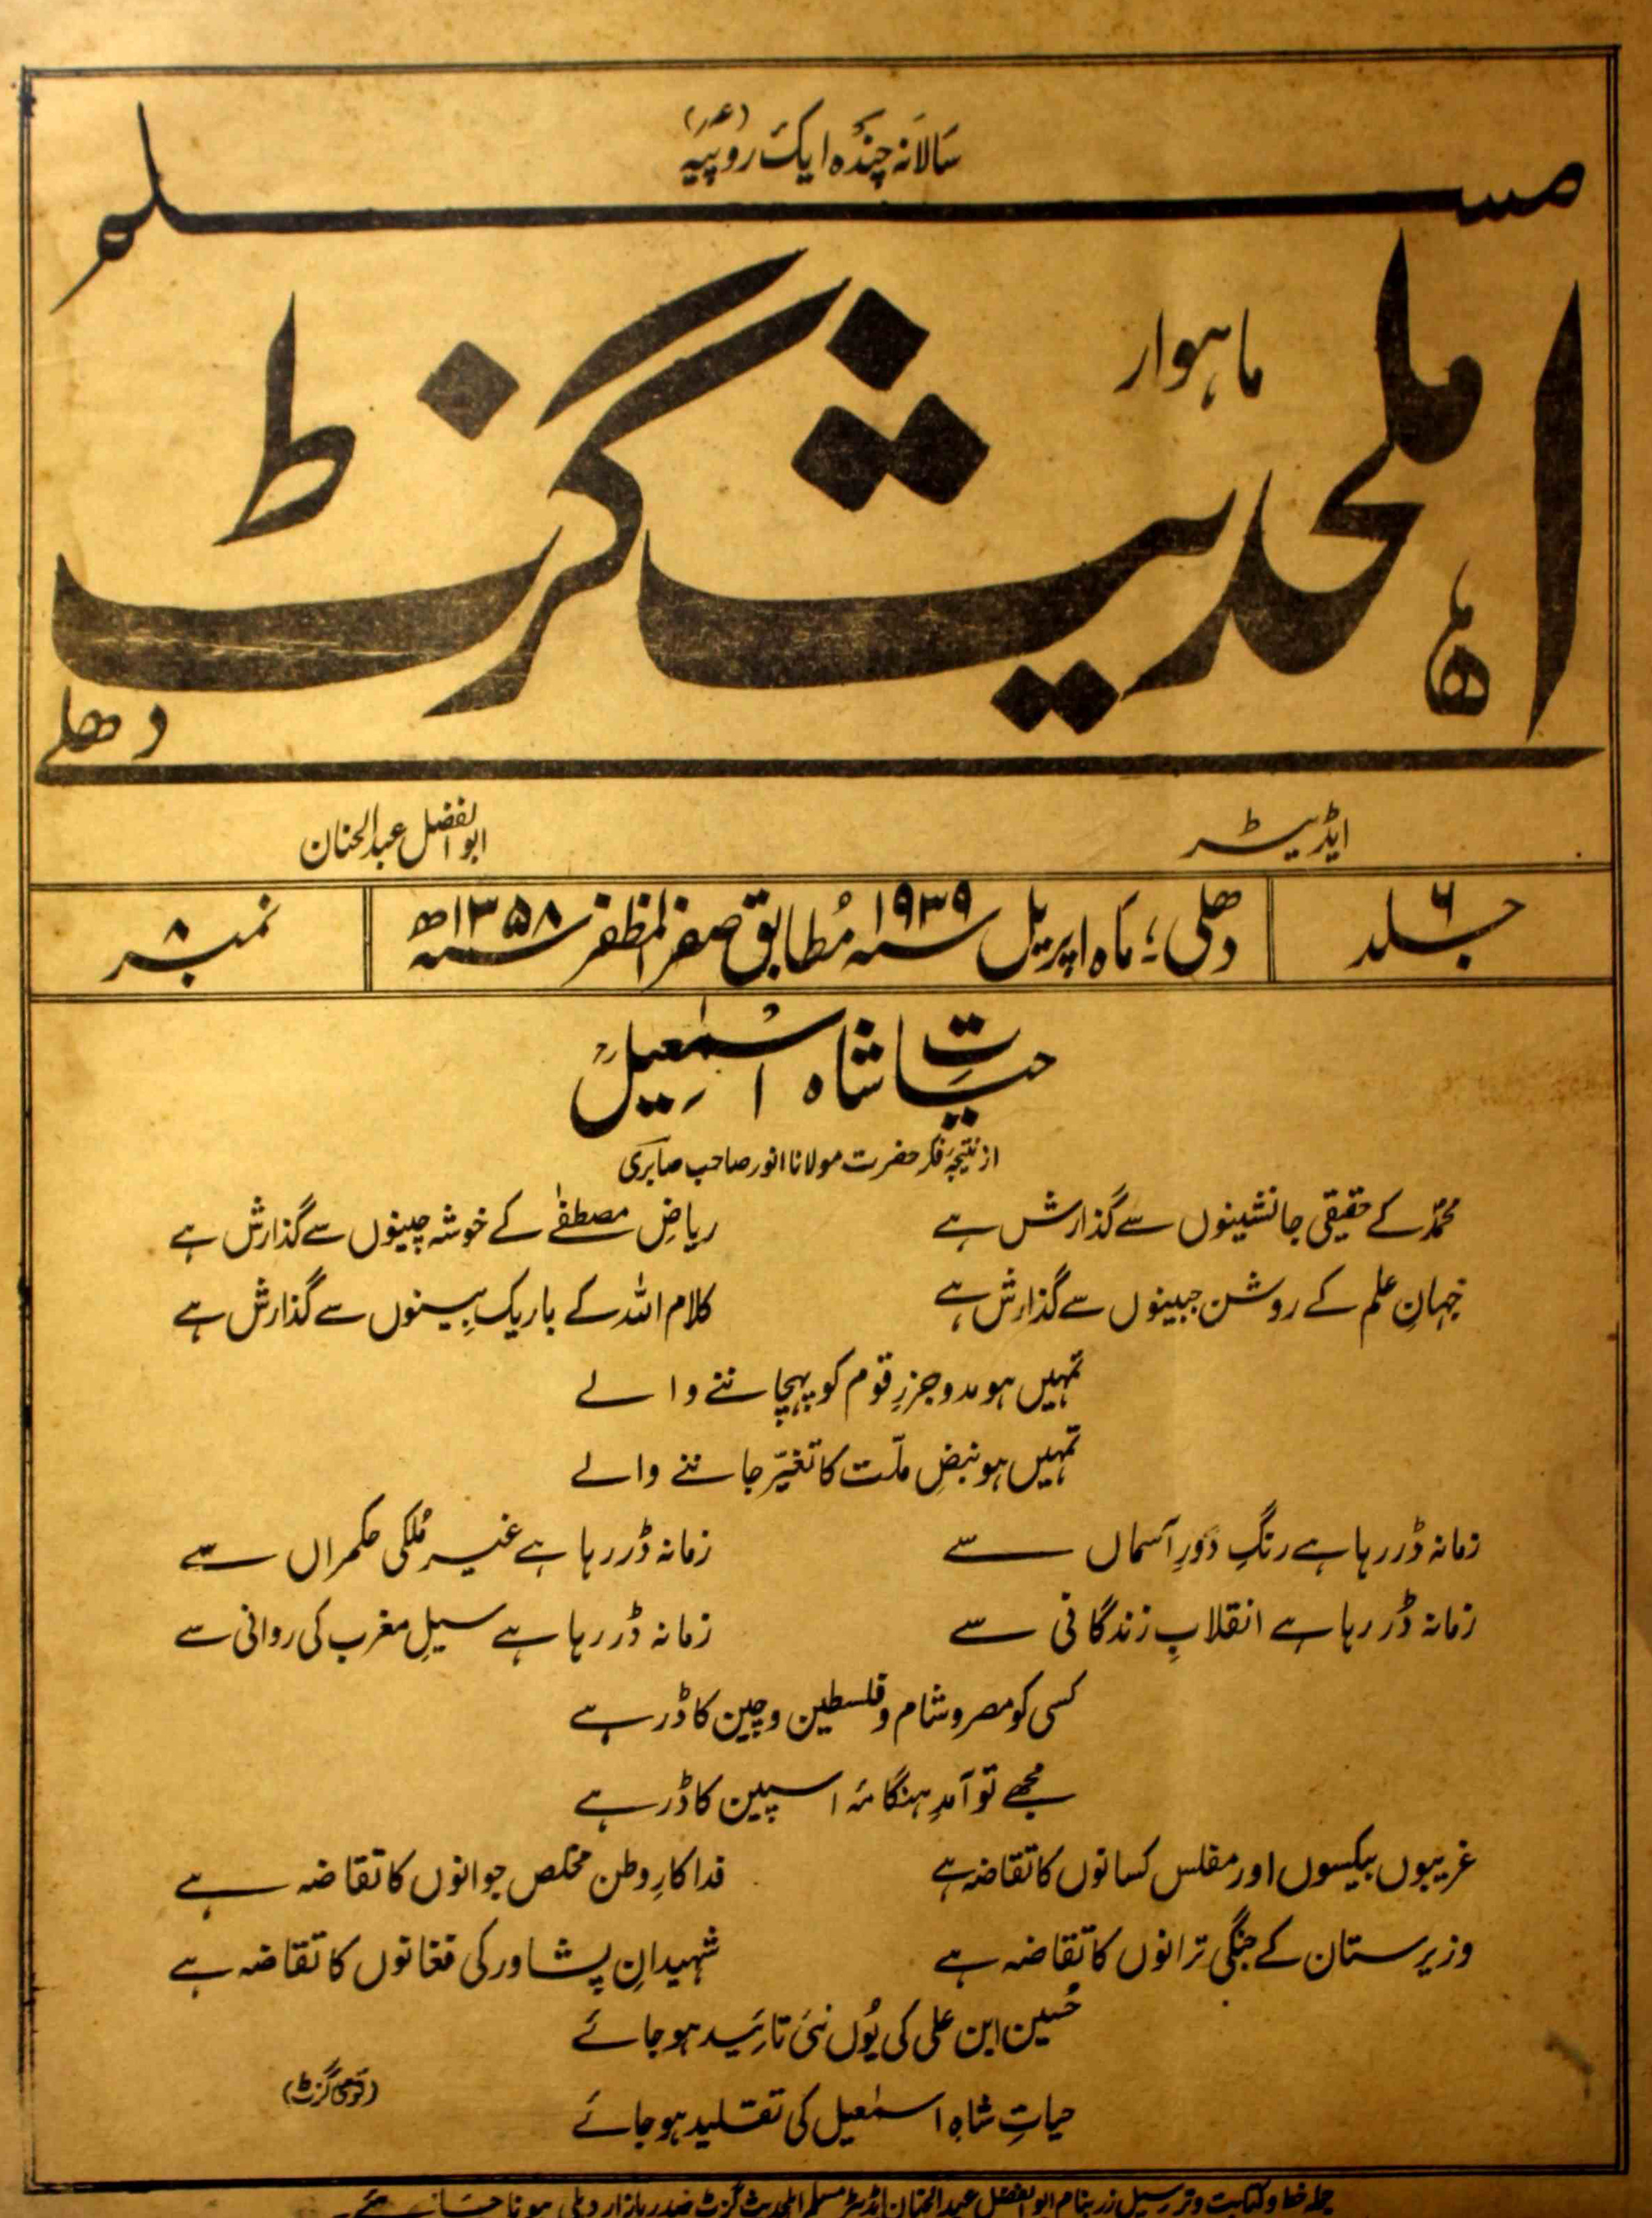 سالانہ چندہ ایک روپیہ (عہ)
مسلم
ماہوار
اہلحدیث گزٹ
دھلی
ایڈیٹر ابوالفضل عبدالحنان
جلد ۶ دھلی؛ ماہ اپریل سنہ ۱۹۳۹ مطابق صفر المظفر سنہ ۱۳۵۸ھ نمبر ۸
حیاتِ شاہ اسمٰعیلؒ
از نتیجہ فکر حضرت مولانا انور صاحب صابری
محمدؐ کے حقیقی جانشینوں سے گذارش ہے ریاضِ مصطفےٰ کے خوشہ چینوں سے گذارش ہے
جہانِ علم کے روشن جبینوں سے گذارش ہے کلام اللہ کے باریک بینوں سے گذارش ہے
تمہیں ہو مدوجزرِ قوم کو پہچاننے والے
تمہیں ہو نبضِ ملّت کا تغیّر جاننے والے
زمانہ ڈر رہا ہے رنگِ دَورِ آسماں سے زمانہ ڈر رہا ہے غیر مُلکی حکمراں سے
زمانہ ڈر رہا ہے انقلابِ زندگانی سے زمانہ ڈر رہا ہے سیلِ مغرب کی روانی سے
کسی کو مصر و شام و فلسطین و چین کا ڈر ہے
مجھے تو آمدِ ہنگامۂ اسپین کا ڈر ہے
غریبوں بیکسوں اور مفلس کسانوں کا تقاضہ ہے فداکارِ وطن مخلص جوانوں کا تقاضہ ہے
وزیرستان کے جنگی ترانوں کا تقاضہ ہے شہیدانِ پشاور کی فغانوں کا تقاضہ ہے
حُسین ابن علی کی یُوں نئی تائید ہوجائے
حیاتِ شاہ اسمٰعیل کی تقلید ہوجائے
(قومی گزٹ)
جملہ خط و کتابت و ترسیل زر بنام ابوالفضل عبدالحنان ایڈیٹر مسلم اہلحدیث گزٹ صدر بازار دہلی ہونا چاہئے۔